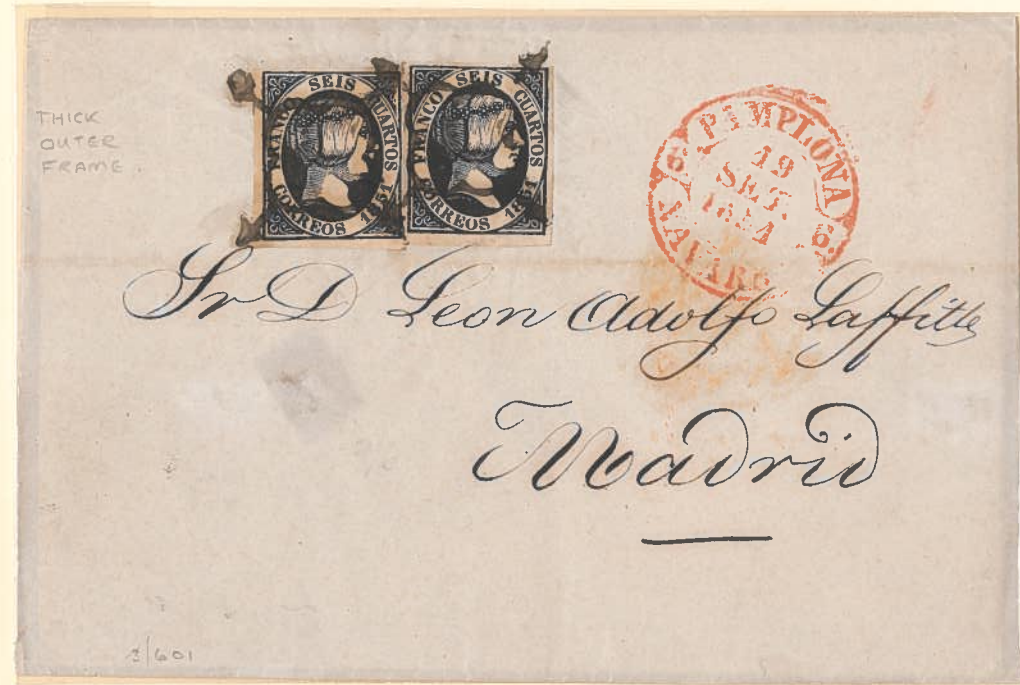 THICK
OUTER
FRAME.
FRANCO SEIS CUARTOS
CORREOS 1851
FRANCO SEIS CUARTOS
CORREOS 1851
PAMPLONA
19
SET.
1851
NAVARRA
Sr D Leon Adolfo Laffitte
Madrid
3/601